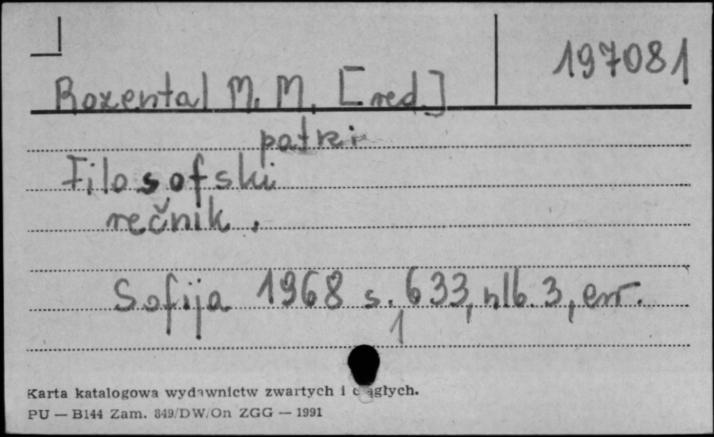 197081
Rozental M. M. [red.]
patrz
Filosofski
rečnik.
Sofija 1968 s. 633, nlb. 3, err.
1
Karta katalogowa wydawnictw zwartych i ciągłych.
PU — B144 Zam. 849/DW/On ZGG — 1991